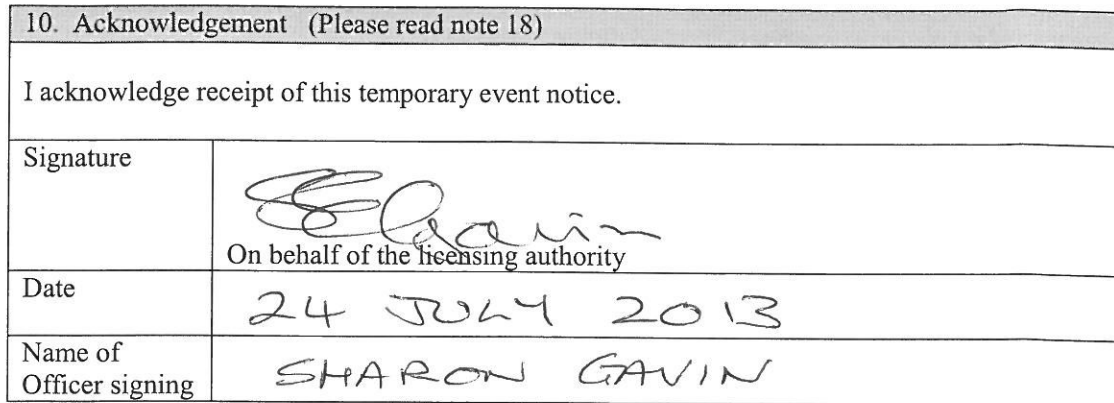 10. Acknowledgement (Please read note 18)
I acknowledge receipt of this temporary event notice.
Signature
SEGavin
On behalf of the licensing authority
Date
24 JULY 2013
Name of
Officer signing
SHARON GAVIN